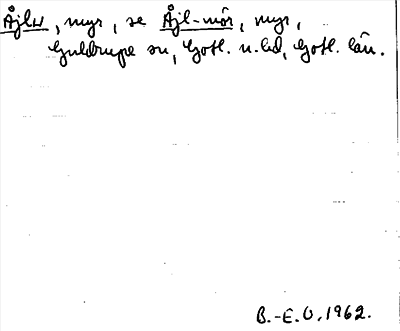 Åjlu, myr, se Åjl-mör, myr,
Guldrupe sn, Gotl. n. hd, Gotl. län.
B.-E.O. 1962.